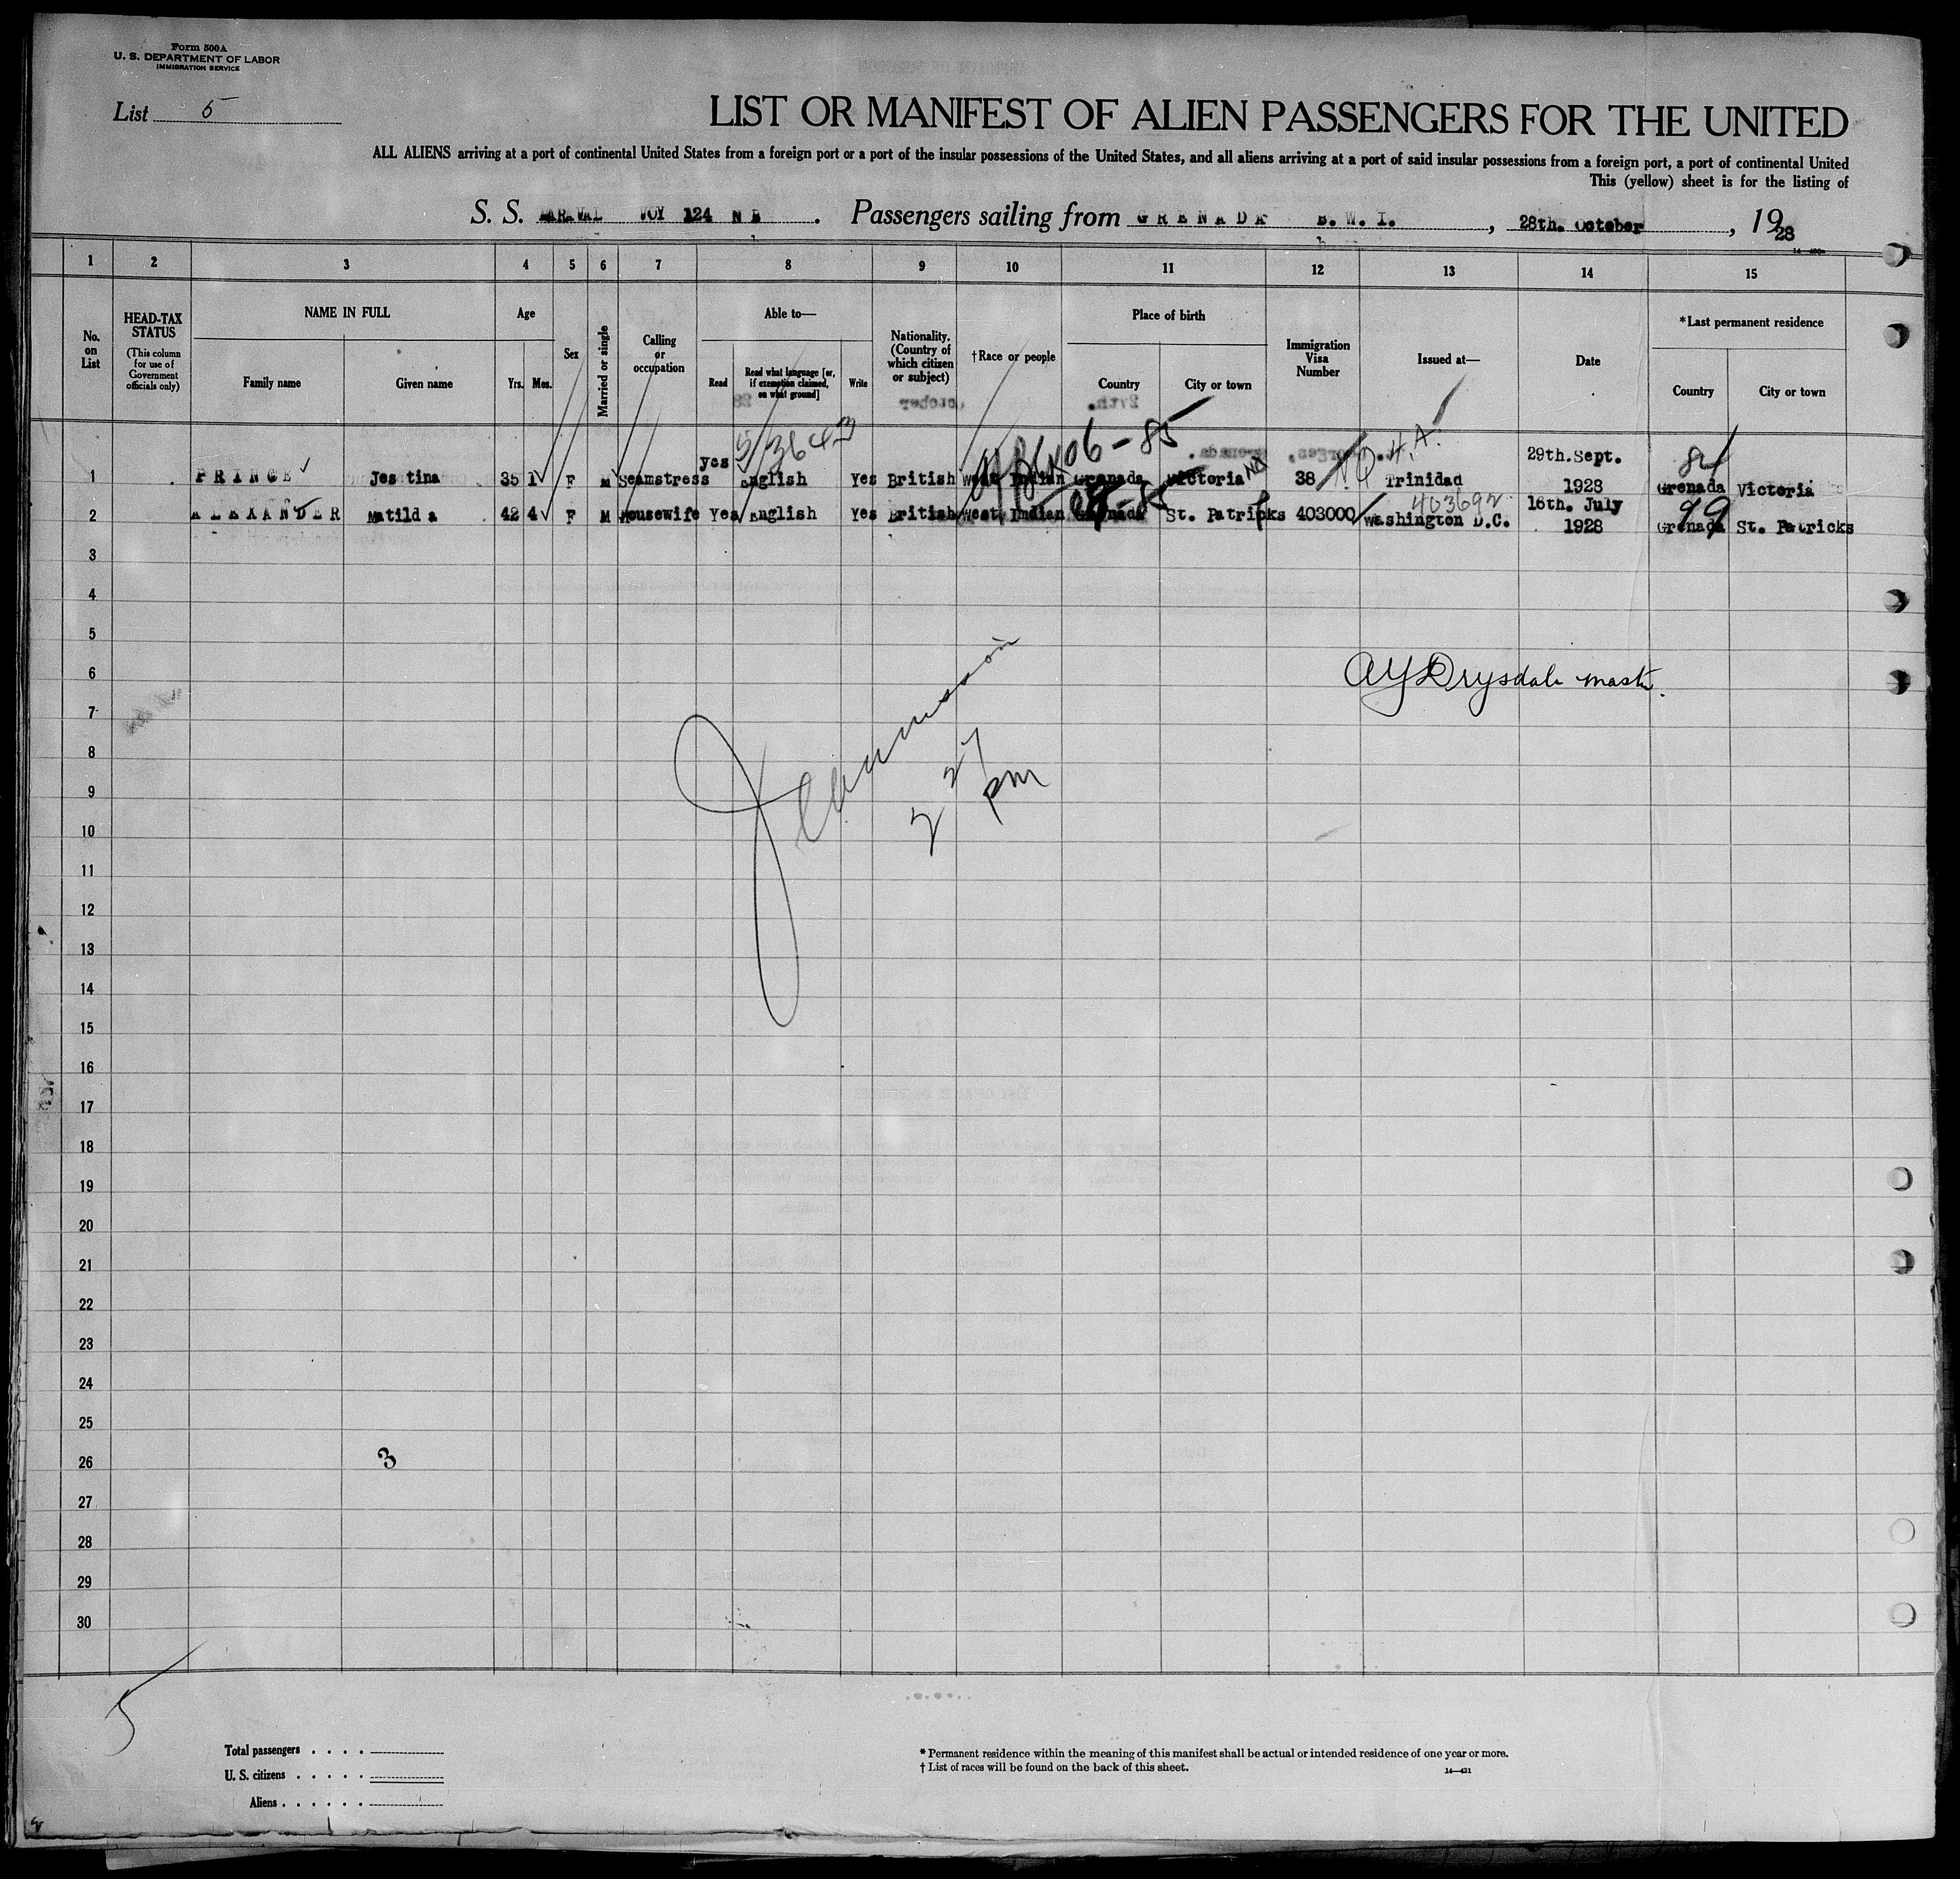 Form 500A
U. S. DEPARTMENT OF LABOR
IMMIGRATION SERVICE
List 5
LIST OR MANIFEST OF ALIEN PASSENGERS FOR THE UNITED
ALL ALIENS arriving at a port of continental United States from a foreign port or a port of the insular possessions of the United States, and all aliens arriving at a port of said insular possessions from a foreign port, a port of continental United
This (yellow) sheet is for the listing of
S. S. MARAVAL VOY 124 N B . Passengers sailing from GRENADA B. W. I. , 28th. October , 1928
1 2 3 4 5 6 7 8 9 10 11 12 13 14 15
No. on List
HEAD-TAX STATUS
(This column for use of Government officials only)
NAME IN FULL
Family name Given name
Age
Yrs. Mos.
Sex
Married or single
Calling or occupation
Able to—
Read
Read what language [or, if exemption claimed, on what ground]
Write
Nationality. (Country of which citizen or subject)
†Race or people
Place of birth
Country City or town
Immigration Visa Number
Issued at—
Date
*Last permanent residence
Country City or town
06-85
1 PRINCE Jestina 35 1 F M Seamstress yes English Yes British West Indian Grenada Victoria 38 Trinidad 29th. Sept. 1928 84 Grenada Victoria
403692
2 ALEXANDER Matilda 42 4 F M Housewife Yes English Yes British West Indian Grenada St. Patricks 403000 Washington D.C. 16th. July 1928 99 Grenada St. Patricks
3
4
5
6
AY Drysdale
7
8
9
2 27 pm
10
11
12
13
14
15
16
17
18
19
20
21
22
23
24
25
26
3
27
28
29
30
5
Total passengers . . . .
U. S. citizens . . . . .
Aliens . . . . . .
* Permanent residence within the meaning of this manifest shall be actual or intended residence of one year or more.
† List of races will be found on the back of this sheet.
14—431